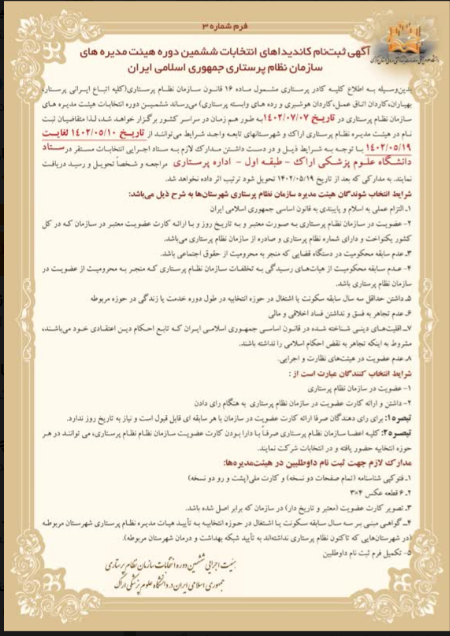 فرم شماره ۳
آگهی ثبت‌نام کاندیداهای انتخابات ششمین دوره هیئت مدیره های
سازمان نظام پرستاری جمهوری اسلامی ایران
بدین‌وسیله به اطلاع کلیه کادر پرستاری مشمول ماده ۱۶ قانون سازمان نظام پرستاری(کلیه اتباع ایرانی پرستار،
بهیاران،کاردان اتاق عمل،کاردان هوشبری و رده های وابسته پرستاری) می‌رساند ششمین دوره انتخابات هیئت مدیره های
سازمان نظام پرستاری در تاریخ ۱۴۰۲/۰۷/۰۷ به طور هم زمان در سراسر کشور برگزار خواهد شد، لذا متقاضیان ثبت
نام در هیئت مدیره نظام پرستاری اراک و شهرستانهای تابعه واجد شرایط می‌توانند از تاریخ ۱۴۰۲/۰۵/۱۰ لغایت
۱۴۰۲/۰۵/۱۹ با توجه به شرایط ذیل و در دست داشتن مدارک لازم به ستاد اجرایی انتخابات مستقر در ستاد
دانشگاه علوم پزشکی اراک - طبقه اول - اداره پرستاری مراجعه و شخصاً تحویل و رسید دریافت
نمایند. به مدارکی که بعد از تاریخ ۱۴۰۲/۰۵/۱۹ تحویل شود ترتیب اثر داده نخواهد شد.
شرایط انتخاب شوندگان هیئت مدیره سازمان نظام پرستاری شهرستان‌ها به شرح ذیل می‌باشد:
۱ـ التزام عملی به اسلام و پایبندی به قانون اساسی جمهوری اسلامی ایران
۲- عضویت در سازمان نظام پرستاری به صورت معتبر و به تاریخ روز و با ارائه کارت عضویت معتبر در سازمان که در کل
کشور یکنواخت و دارای شماره نظام پرستاری و صادره از سازمان نظام پرستاری می‌باشد.
۳ـ عدم سابقه محکومیت در دستگاه قضایی که منجر به محرومیت از حقوق اجتماعی باشد.
۴- عدم سابقه محکومیت از هیات‌های رسیدگی به تخلفات سازمان نظام پرستاری که منجر به محرومیت از عضویت در
سازمان نظام پرستاری باشد.
۵ـ داشتن حداقل سه سال سابقه سکونت یا اشتغال در حوزه انتخابیه در طول دوره خدمت یا زندگی در حوزه مربوطه
۶ـ عدم تجاهر به فسق و نداشتن فساد اخلاقی و مالی
۷ـ اقلیت‌های دینی شناخته شده در قانون اساسی جمهوری اسلامی ایران که تابع احکام دین اعتقادی خود می‌باشند،
مشروط به اینکه تجاهر به نقض احکام اسلامی را نداشته باشند.
۸ـ عدم عضویت در هیئت‌های نظارت و اجرایی.
شرایط انتخاب کنندگان عبارت است از :
۱- عضویت در سازمان نظام پرستاری
۲- داشتن و ارائه کارت عضویت در سازمان نظام پرستاری به هنگام رای دادن
تبصره۱: برای رای دهندگان صرفا ارائه کارت عضویت در سازمان با هر سابقه ای قابل قبول است و نیاز به تاریخ روز ندارد.
تبصره۲: کلیه اعضا سازمان نظام پرستاری صرفاً با دارا بودن کارت عضویت سازمان نظام نظام پرستاری، می توانند در هر
حوزه انتخابیه حضور یافته و در انتخابات شرکت نمایند.
مدارک لازم جهت ثبت نام داوطلبین در هیئت‌مدیره‌ها:
۱ـ فتوکپی شناسنامه (تمام صفحات دو نسخه) و کارت ملی(پشت و رو دو نسخه)
۲ـ ۶ قطعه عکس ۴×۳
۳ـ تصویر کارت عضویت (معتبر و تاریخ دار) در سازمان که برابر اصل شده باشد.
۴ـ گواهی مبنی بر سه سال سابقه سکونت یا اشتغال در حوزه انتخابیه به تأیید هیات مدیره نظام پرستاری شهرستان مربوطه.
(در شهرستان‌هایی که تاکنون نظام پرستاری نداشته‌اند به تأیید شبکه بهداشت و درمان شهرستان مربوطه).
۵- تکمیل فرم ثبت نام داوطلبین
هیئت اجرایی ششمین دوره انتخابات سازمان نظام پرستاری
جمهوری اسلامی ایران در دانشگاه علوم پزشکی اراک